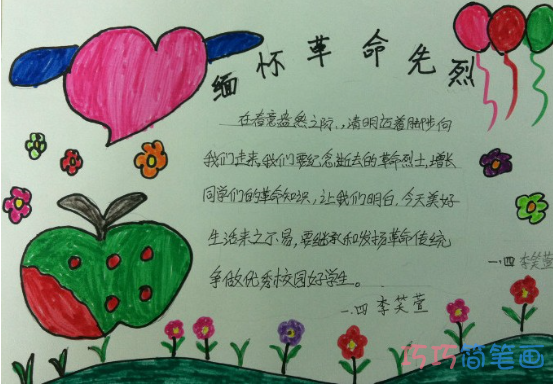 缅怀革命先烈
在春意盎然之际,清明迈着脚步向
我们走来,我们要纪念逝去的革命烈士,增长
同学们的革命知识,让我们明白,今天美好
生活来之不易,要继承和发扬革命传统
争做优秀校园好学生。
一.四 李笑萱
一.四 李笑萱
巧巧简笔画